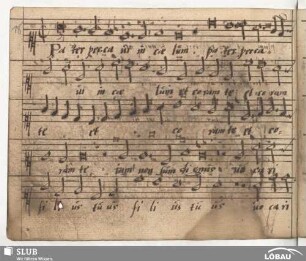 Pa ter pecca vi in cæ lum pa ter pecca
vi in cæ lum et coram te et coram
te et co ram te et co
ram te jam non sum di gnus vo cari
fi li us tu us fi li us tu us vo cari
SLUB
Wir führen Wissen.
LÖBAU